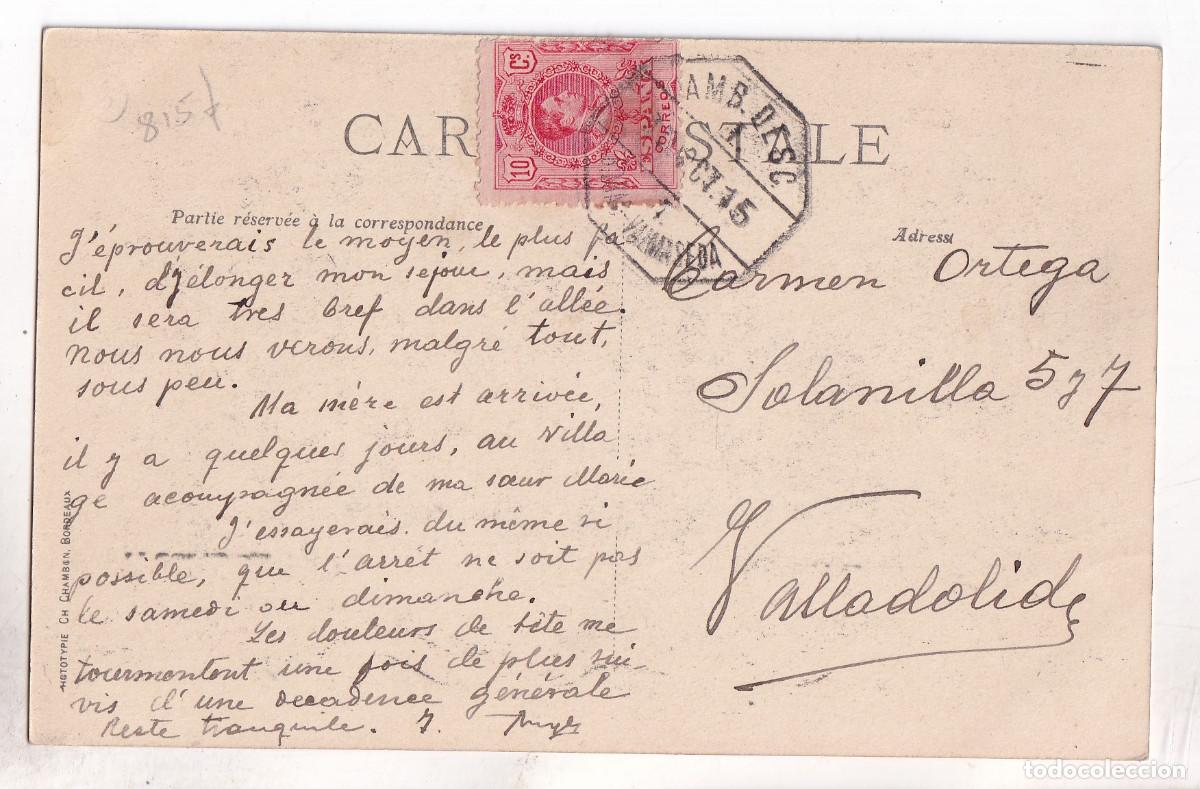 8157
CARTE POSTALE
10 Cs
ESPAÑA
CORREOS
AMB. DESC.
OCT. 15
Partie réservée à la correspondance
Adresse
J'éprouverais le moyen, le plus fa
cil, d'élonger mon sejour, mais
il sera tres bref dans l'allée.
Nous nous verons, malgré tout,
sous peu.
Ma mère est arrivée,
il y a quelques jours, au villa
ge acoumpagnée de ma sœur Marie
J'essayerais du même si
possible, que l'arrét ne soit pas
le samedi ou dimanche.
Les douleurs de tête me
tourmontent une fois de plus sui-
vis d'une decadence générale
Reste tranquile. J.
Carmen Ortega
Solanilla 5 y 7
Valladolid
PHOTOTYPIE CH CHAMBON, BORDEAUX
todocoleccion.net